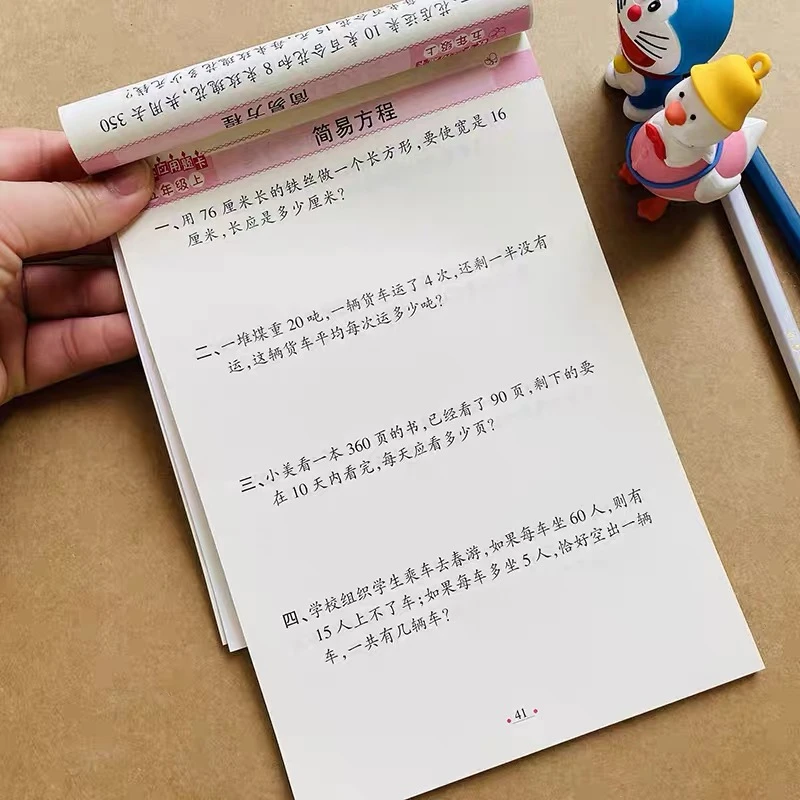 花店运来 10 束百合花和 8 束玫瑰花,共用去 350
五年级上
简易方程
应用题卡
五年级上
简易方程
一、用 76 厘米长的铁丝做一个长方形,要使宽是 16
厘米,长应是多少厘米?
二、一堆煤重 20 吨,一辆货车运了 4 次,还剩一半没有
运,这辆货车平均每次运多少吨?
三、小美看一本 360 页的书,已经看了 90 页,剩下的要
在 10 天内看完,每天应看多少页?
四、学校组织学生乘车去春游,如果每车坐 60 人,则有
15 人上不了车;如果每车多坐 5 人,恰好空出一辆
车,一共有几辆车?
41